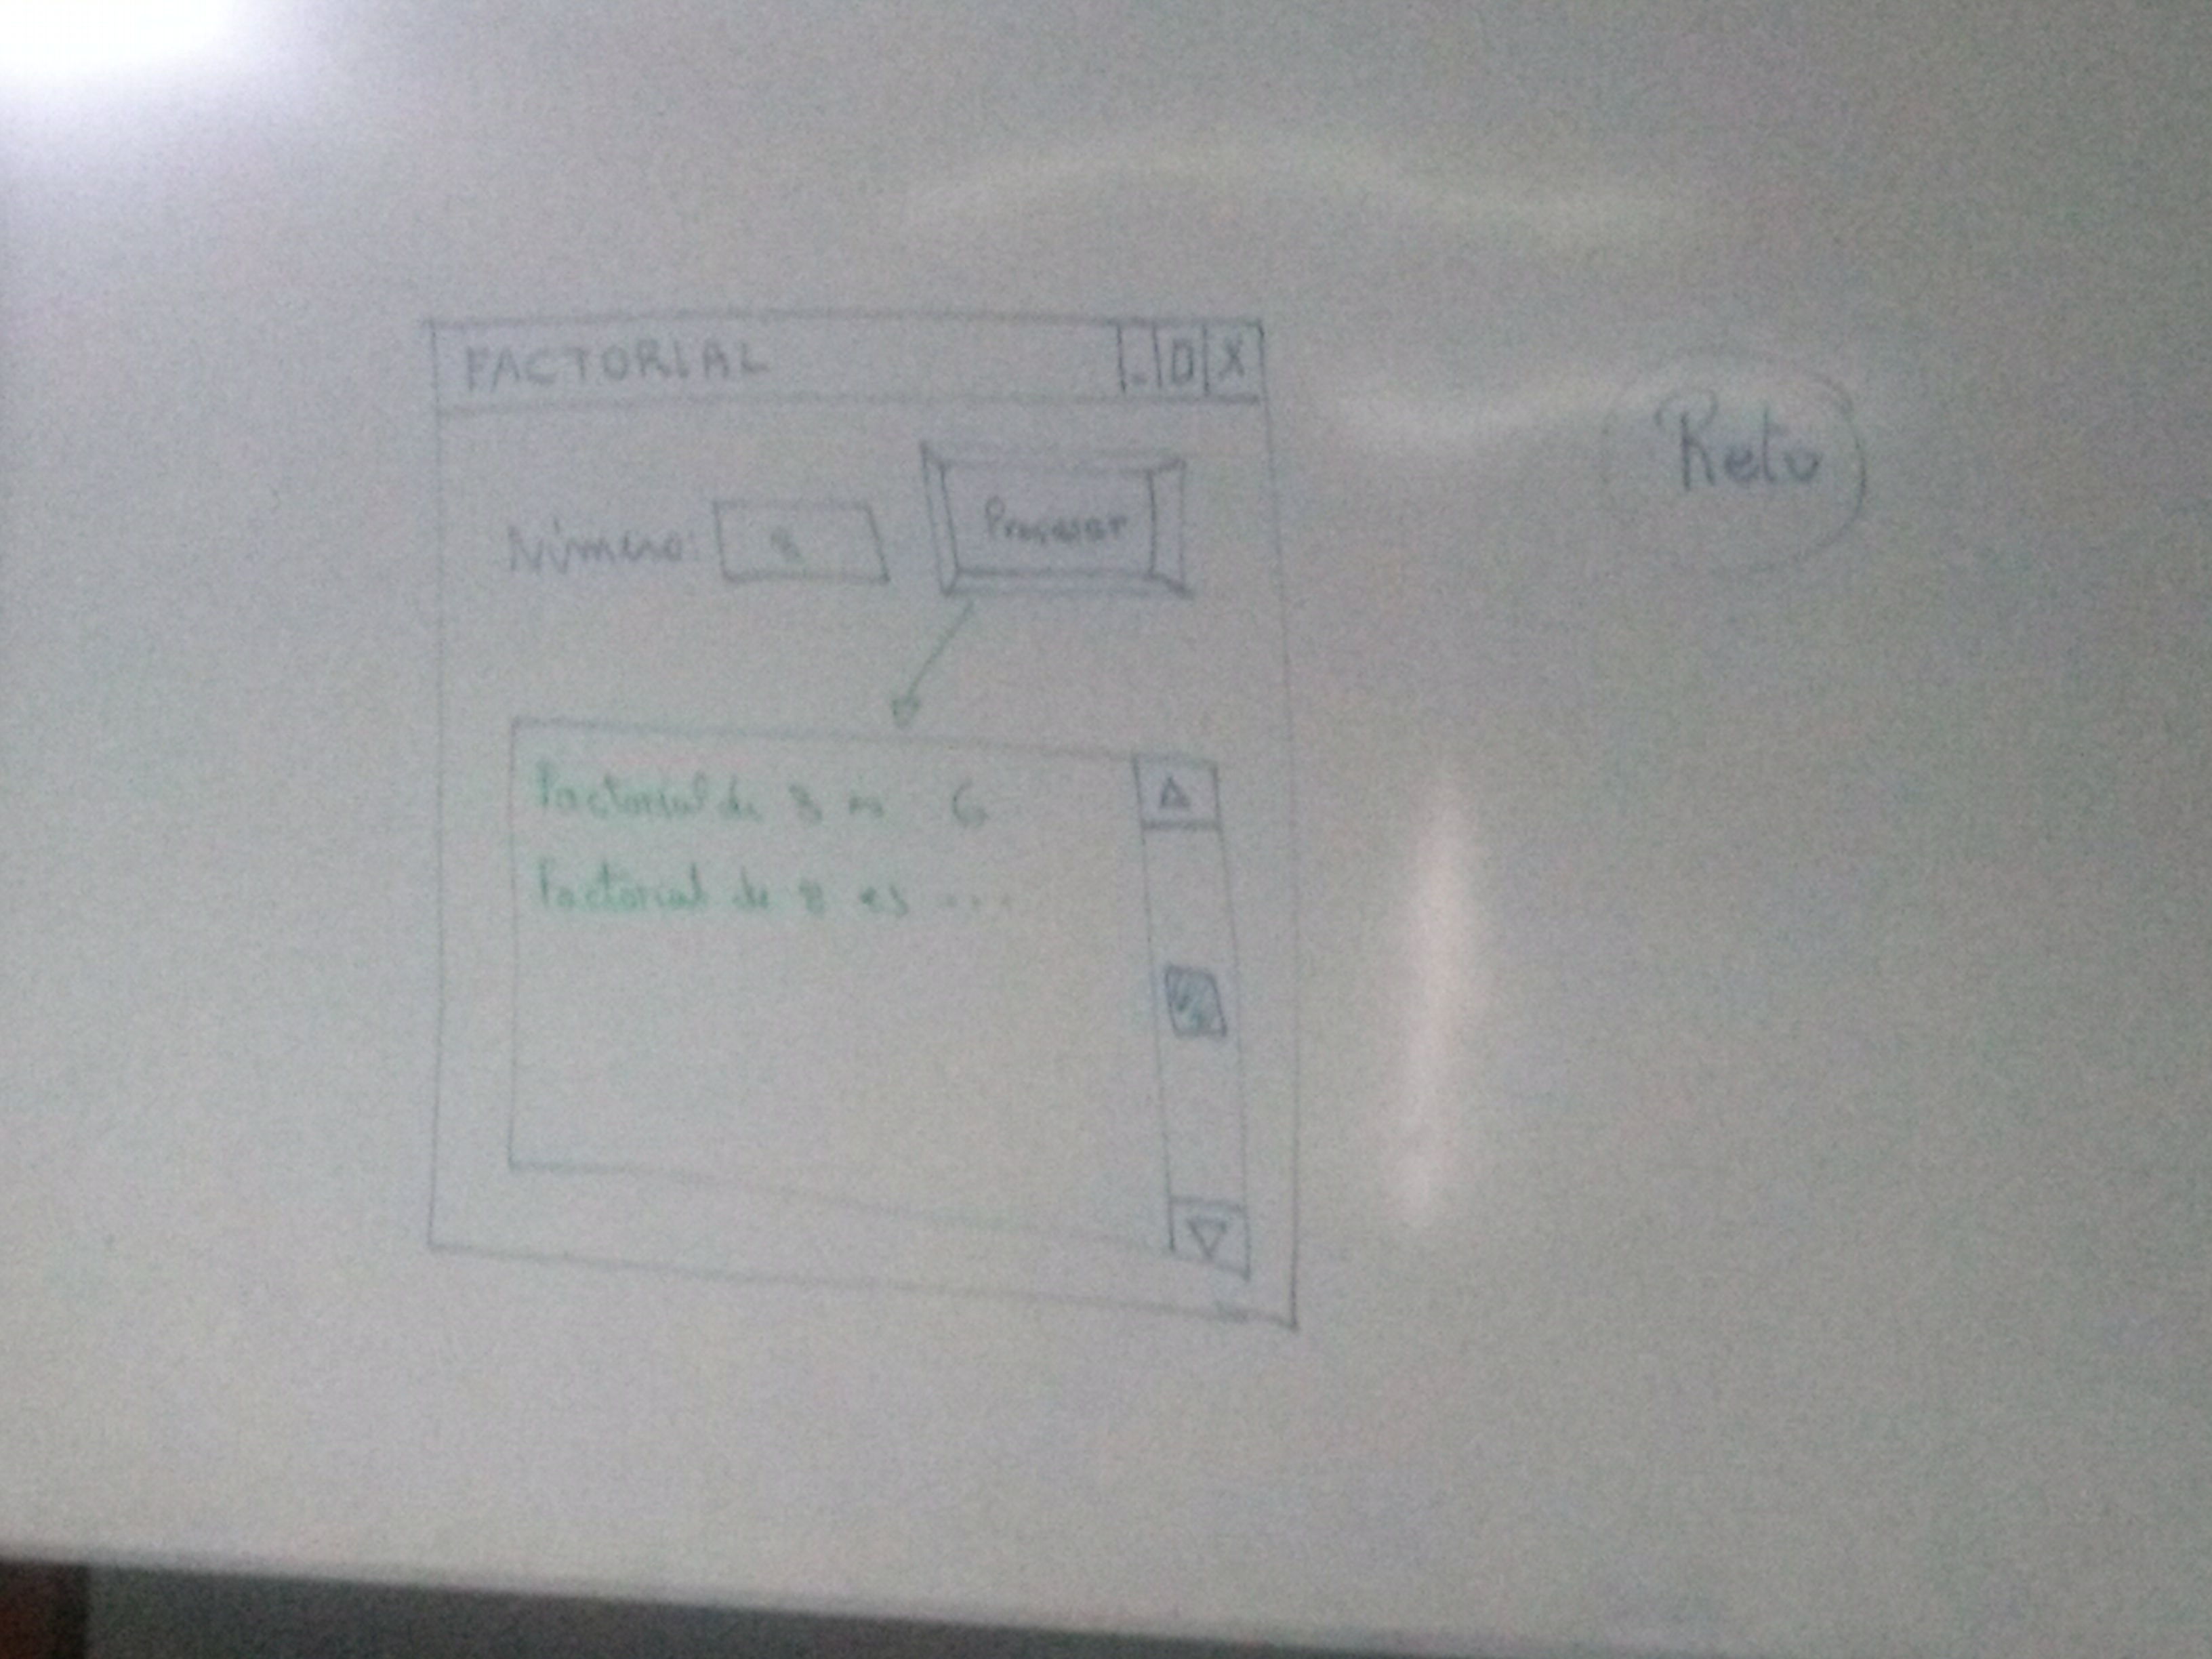 FACTORIAL
Reto
Número: 8 Procesar
Factorial de 3 es 6
Factorial de 8 es ...